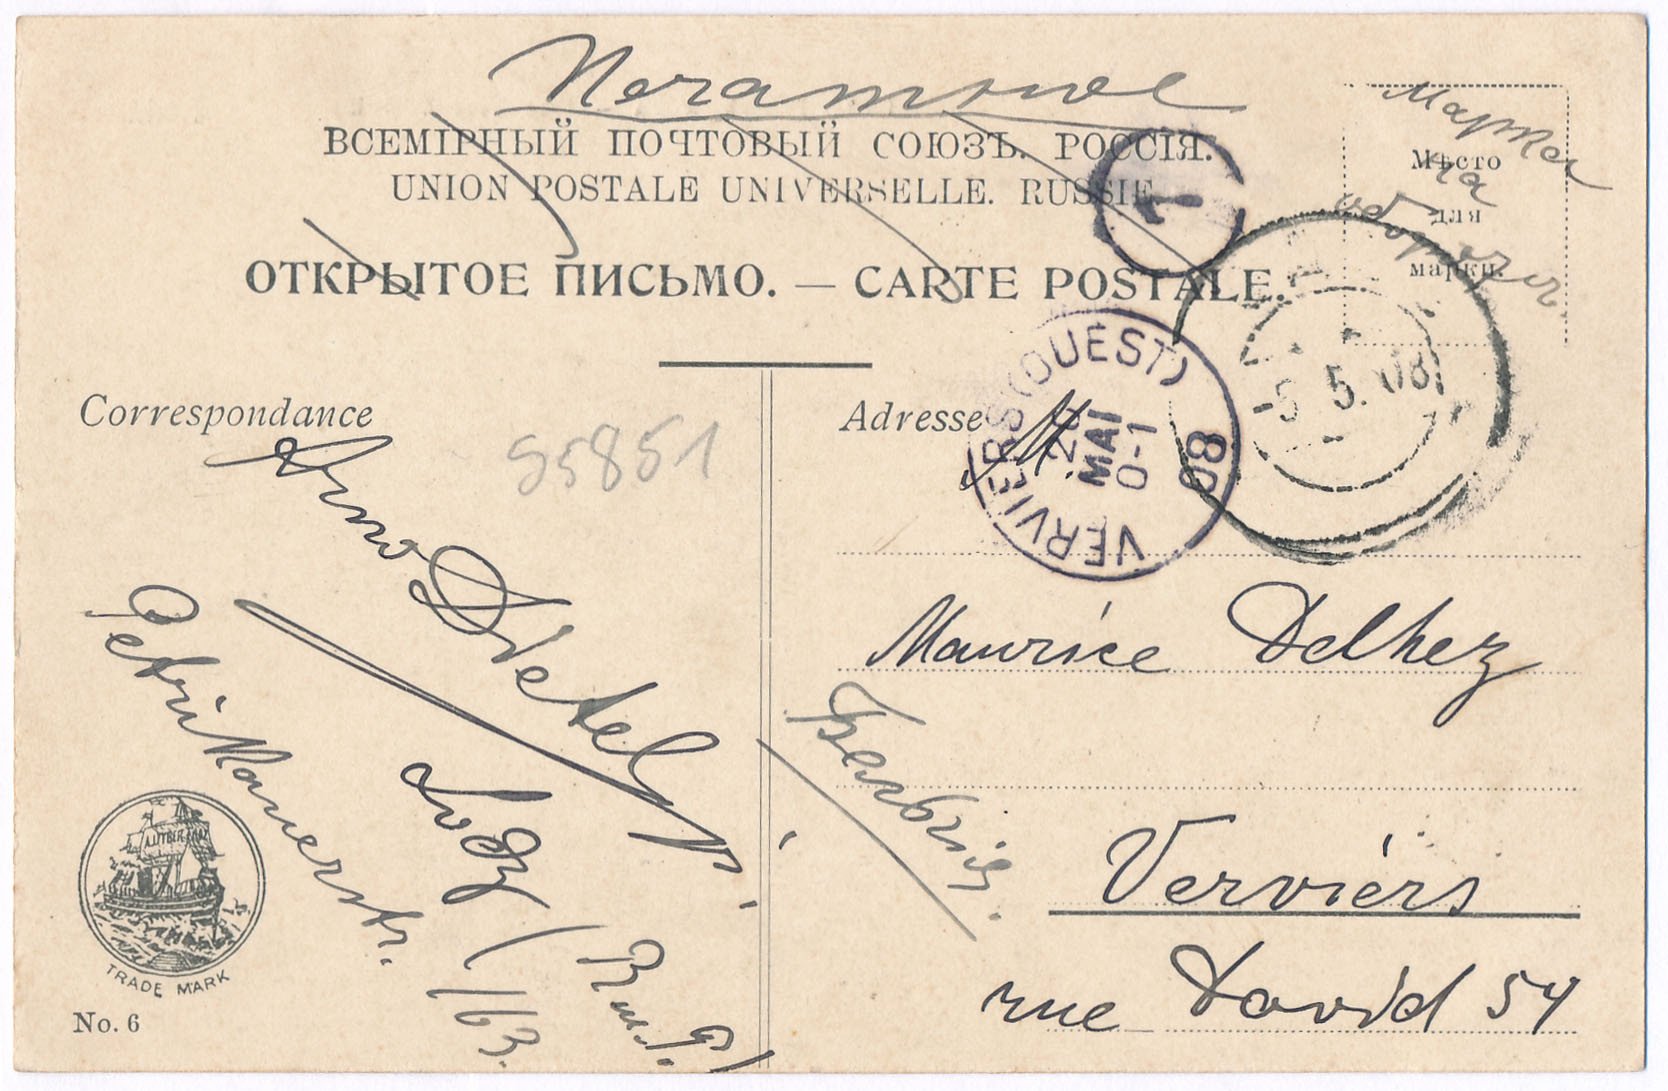 Печатное
ВСЕМІРНЫЙ ПОЧТОВЫЙ СОЮЗЪ. РОССІЯ.
UNION POSTALE UNIVERSELLE. RUSSIE.
ОТКРЫТОЕ ПИСЬМО. — CARTE POSTALE.
Марка
на
оборотѣ
Мѣсто
для
марки.
1
5.5.08
VERVIERS (OUEST)
MAI
0-1
08
Correspondance
95851
Adresse
M
Arno Dietel
Petrikauerstr. 163.
Lodz
(Russ. P.)
Maurice Delhez
Бельгія.
Verviers
rue David 54
A. LIEBERFARB
TRADE MARK
No. 6